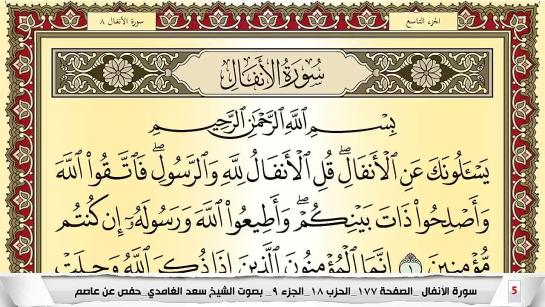 سورة الأنفال ٨
الجزء التاسع
سُورَةُ الأَنفَالِ
بِسْمِ اللَّهِ الرَّحْمَٰنِ الرَّحِيمِ
يَسْـَٔلُونَكَ عَنِ ٱلْأَنفَالِۖ قُلِ ٱلْأَنفَالُ لِلَّهِ وَٱلرَّسُولِۖ فَٱتَّقُوا۟ ٱللَّهَ
وَأَصْلِحُوا۟ ذَاتَ بَيْنِكُمْۖ وَأَطِيعُوا۟ ٱللَّهَ وَرَسُولَهُۥٓ إِن كُنتُم
مُّؤْمِنِينَ ١ إِنَّمَا ٱلْمُؤْمِنُونَ ٱلَّذِينَ إِذَا ذُكِرَ ٱللَّهُ وَجِلَتْ
سورة الأنفال _الصفحة ١٧٧_ الحزب ١٨_ الجزء ٩_ بصوت الشيخ سعد الغامدي_ حفص عن عاصم
5